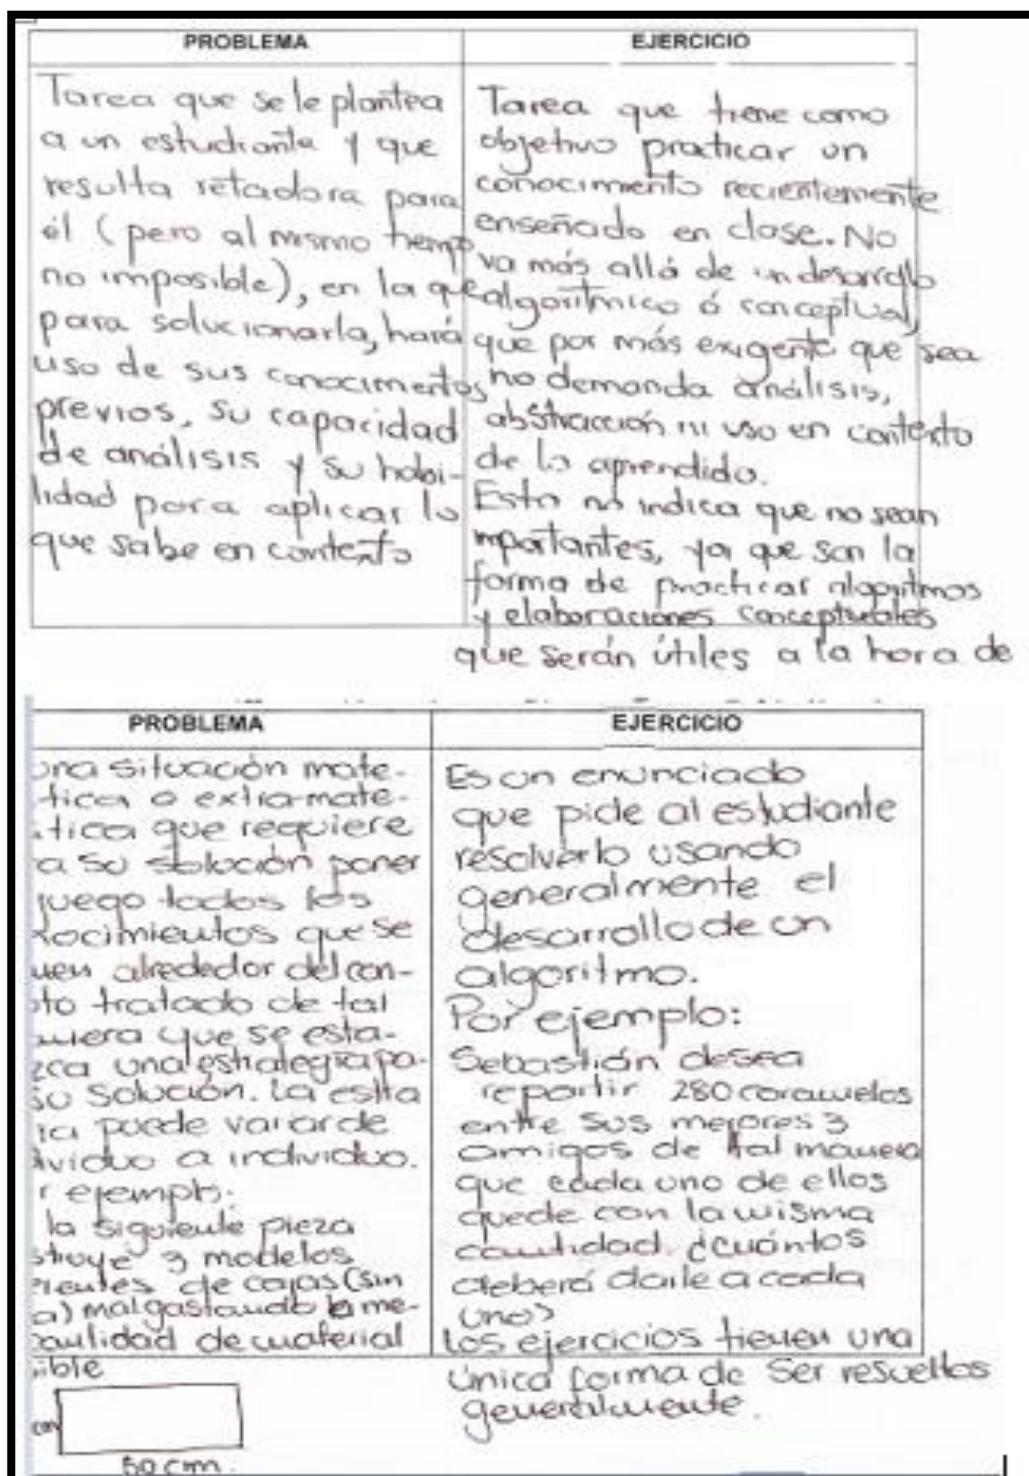 PROBLEMA
Tarea que se le plantea
a un estudiante y que
resulta retadora para
él (pero al mismo tiempo
no imposible), en la que
para solucionarla, hará
uso de sus conocimientos
previos, su capacidad
de análisis y su habi-
lidad para aplicar lo
que sabe en contexto
EJERCICIO
Tarea que tiene como
objetivo practicar un
conocimiento recientemente
enseñado en clase. No
va más allá de un desarrollo
algorítmico ó conceptual,
que por más exigente que sea
no demanda análisis,
abstracción ni uso en contexto
de lo aprendido.
Esto no indica que no sean
importantes, ya que son la
forma de practicar algoritmos
y elaboraciones conceptuales
que serán útiles a la hora de
PROBLEMA
una situación mate-
tica o extra-mate-
tica que requiere
a su solución poner
juego todos los
nocimientos que se
nen alrededor del con-
to tratado de tal
nera que se esta-
zca una estrategia pa-
su solución. La estra
ia puede variar de
dividuo a individuo.
r ejemplo:
la siguiente pieza
struye 3 modelos
erentes de cajas (sin
a) malgastando la me-
cantidad de material
sible
cm
50 cm.
EJERCICIO
Es un enunciado
que pide al estudiante
resolverlo usando
generalmente el
desarrollo de un
algoritmo.
Por ejemplo:
Sebastián desea
repartir 280 caramelos
entre sus mejores 3
amigos de tal manera
que cada uno de ellos
quede con la misma
cantidad. ¿Cuántos
deberá darle a cada
uno?
Los ejercicios tienen una
única forma de ser resueltos
generalmente.